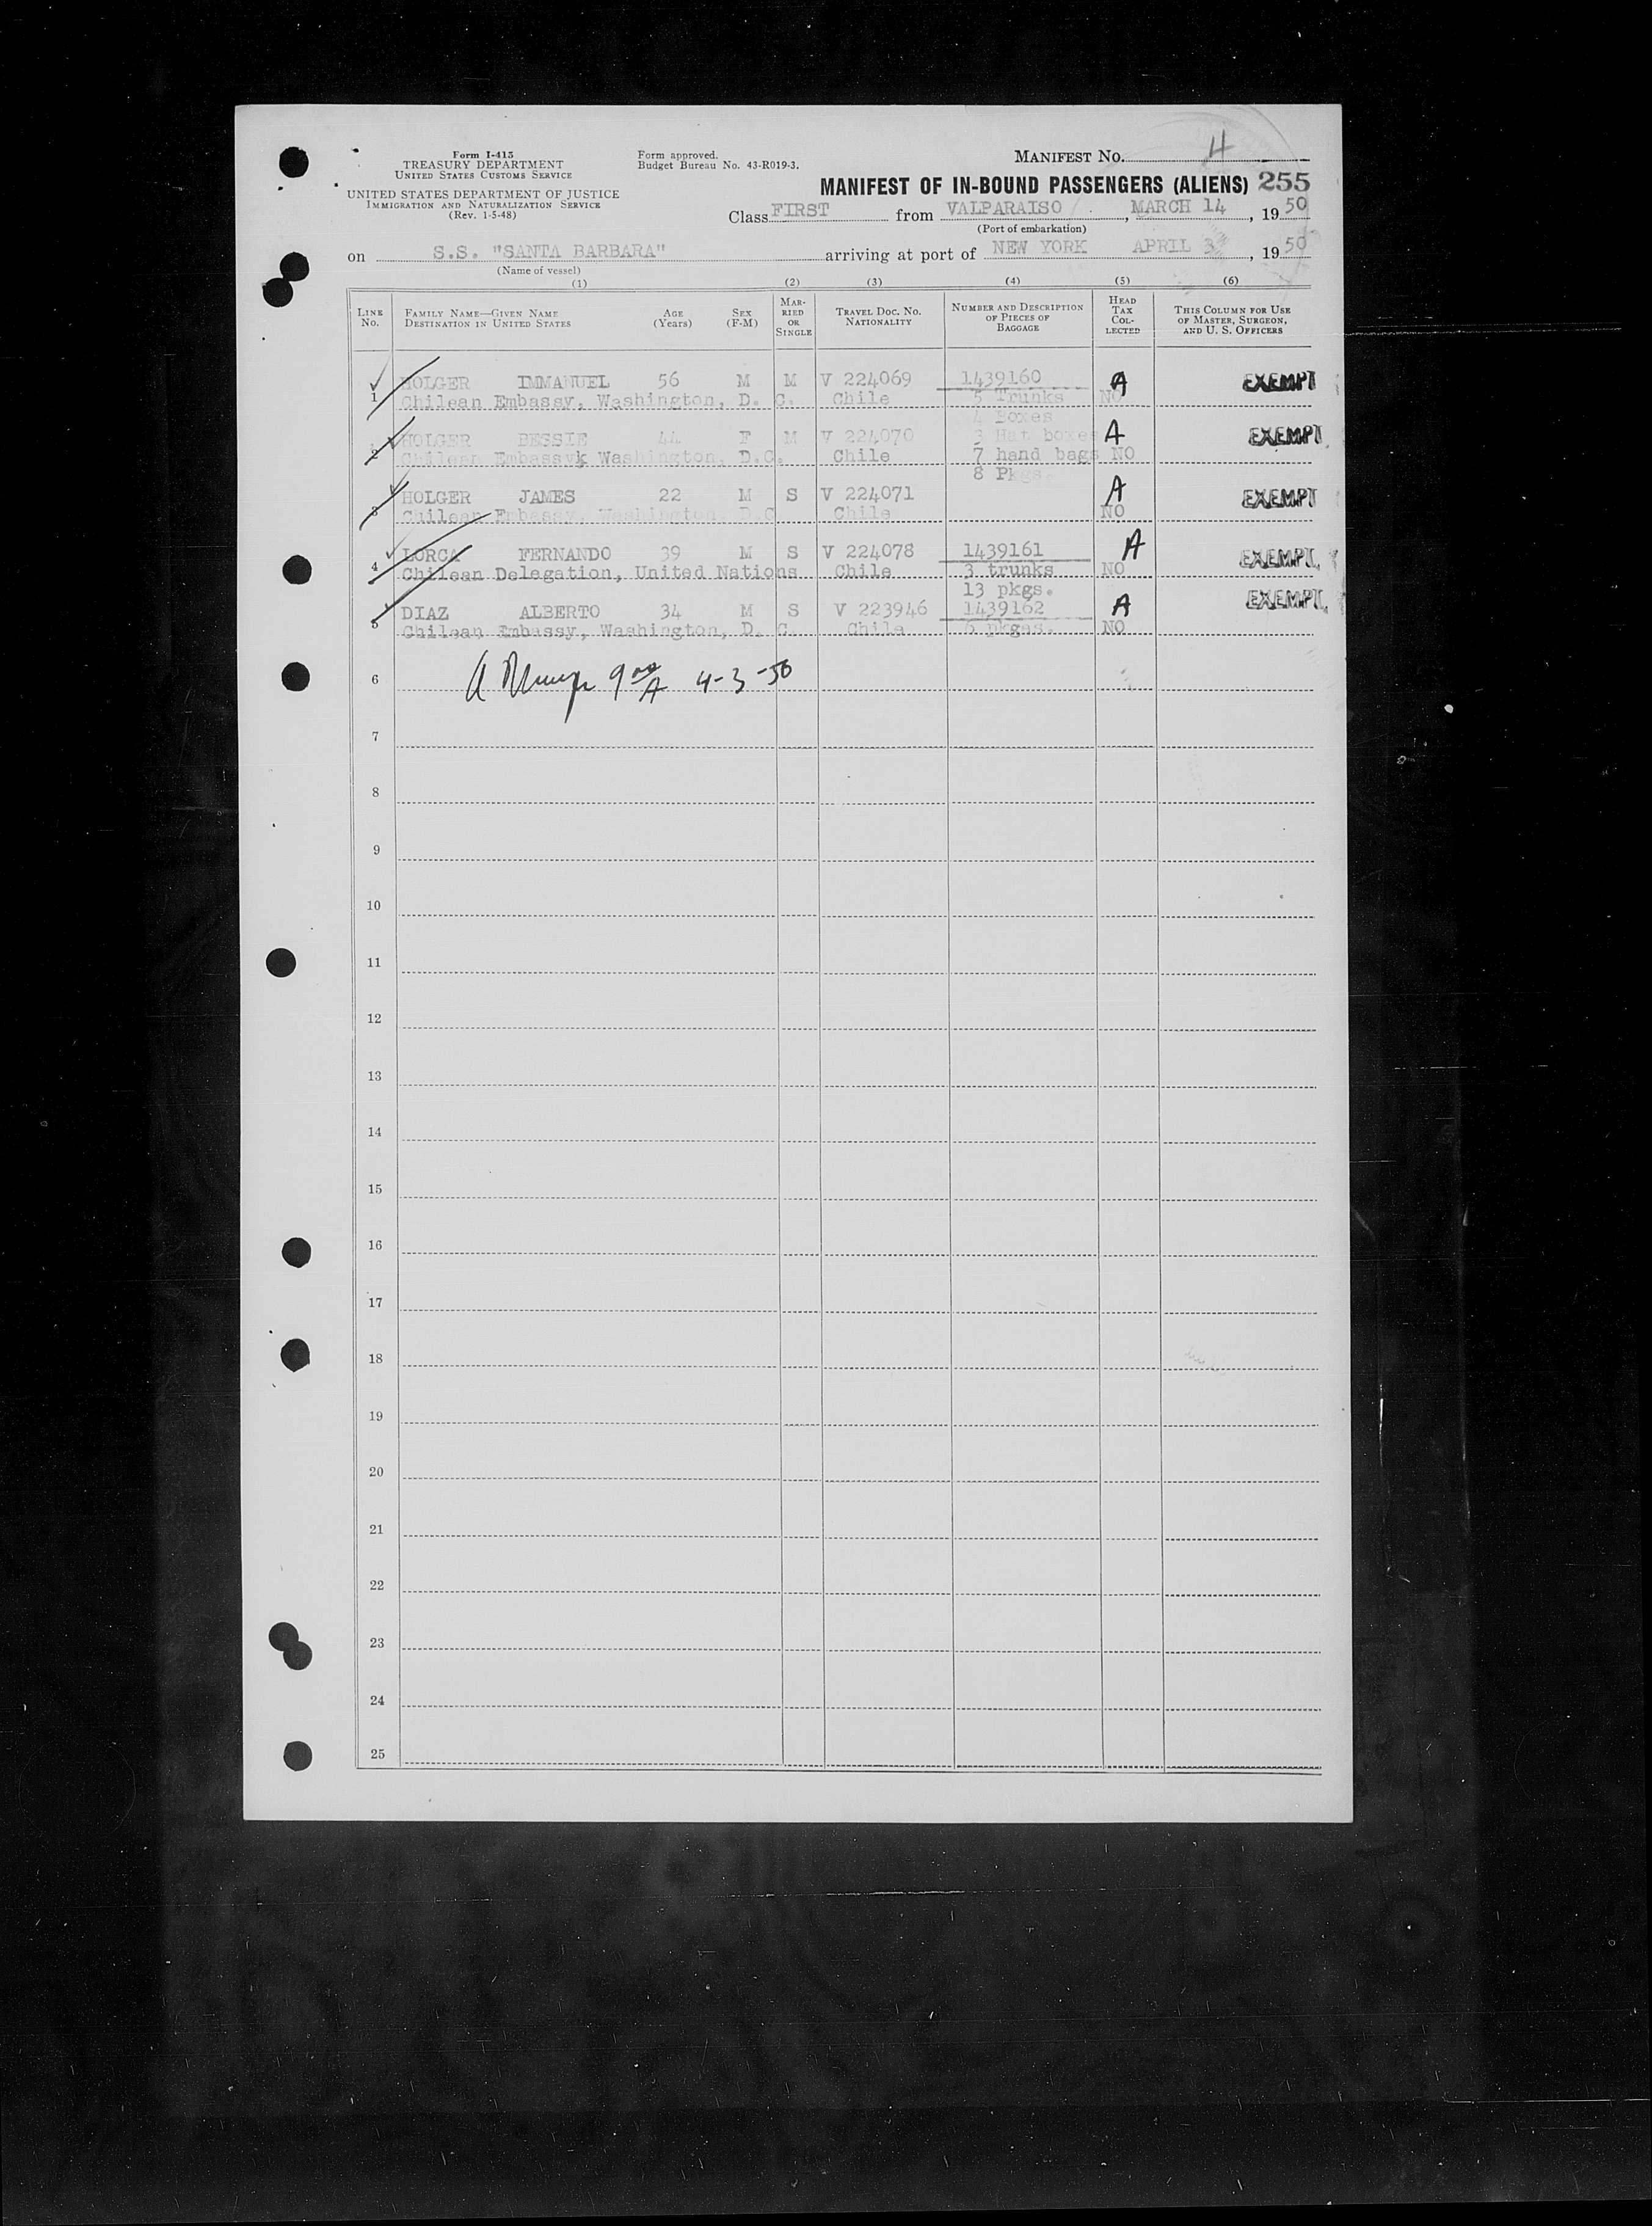 Form I-415
TREASURY DEPARTMENT
UNITED STATES CUSTOMS SERVICE
UNITED STATES DEPARTMENT OF JUSTICE
IMMIGRATION AND NATURALIZATION SERVICE
(Rev. 1-5-48)
Form approved.
Budget Bureau No. 43-R019-3.
MANIFEST No. 4
MANIFEST OF IN-BOUND PASSENGERS (ALIENS) 255
Class FIRST from VALPARAISO, MARCH 14, 1950
(Port of embarkation)
on S.S. "SANTA BARBARA" arriving at port of NEW YORK APRIL 3, 1950
(Name of vessel)
(1) (2) (3) (4) (5) (6)
LINE No. FAMILY NAME—GIVEN NAME DESTINATION IN UNITED STATES AGE (Years) SEX (F-M) MARRIED OR SINGLE TRAVEL DOC. NO. NATIONALITY NUMBER AND DESCRIPTION OF PIECES OF BAGGAGE HEAD TAX COLLECTED THIS COLUMN FOR USE OF MASTER, SURGEON, AND U. S. OFFICERS
HOLGER IMMANUEL 56 M M V 224069 1439160 A EXEMPT
1 Chilean Embassy, Washington, D. C. Chile 5 Trunks NO
4 Boxes
HOLGER BESSIE 44 F M V 224070 3 Hat boxes A EXEMPT
2 Chilean Embassyk Washington, D.C. Chile 7 hand bags NO
8 Pkgs.
HOLGER JAMES 22 M S V 224071 A EXEMPT
3 Chilean Embassy, Washington, D.C Chile NO
LORCA FERNANDO 39 M S V 224078 1439161 A EXEMPT
4 Chilean Delegation, United Nations Chile 3 trunks NO
13 pkgs.
DIAZ ALBERTO 34 M S V 223946 1439162 A EXEMPT
5 Chilean Embassy, Washington, D. C. Chile 6 pkgas. NO
6 9 00 A 4-3-50
7
8
9
10
11
12
13
14
15
16
17
18
19
20
21
22
23
24
25